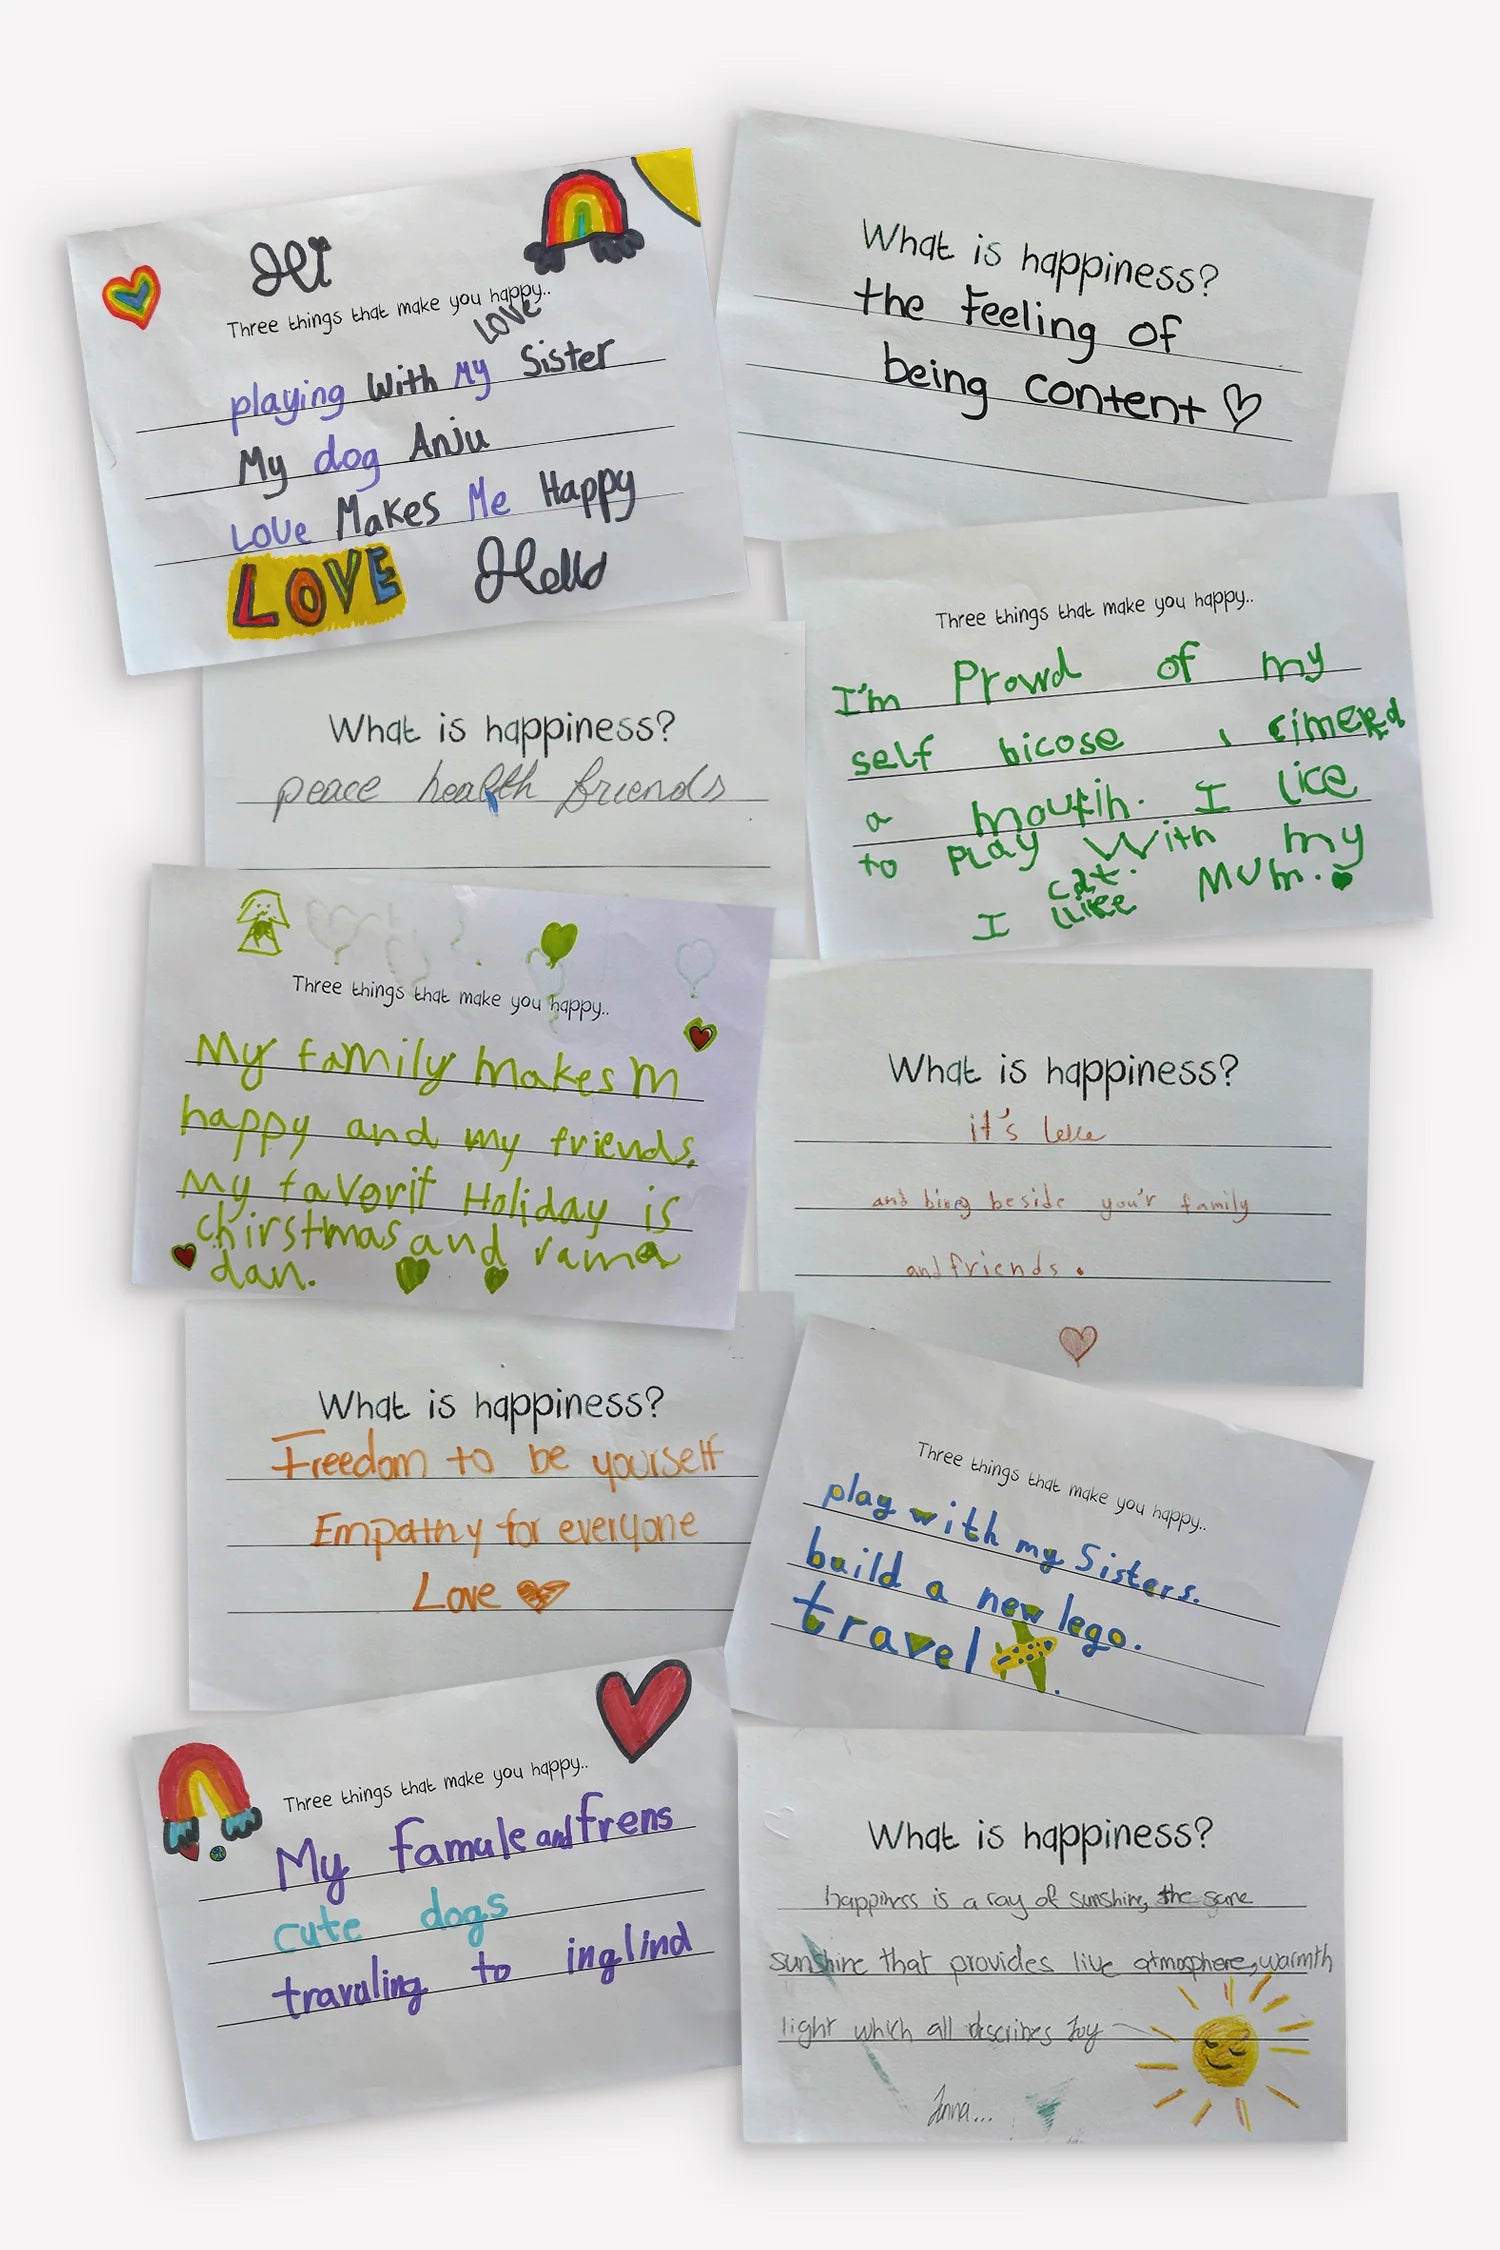 Hi
Three things that make you happy..
LOVE
playing With My Sister
My dog Anju
LOVE Makes Me Happy
LOVE Hello
What is happiness?
the Feeling of
being content
What is happiness?
peace health friends
Three things that make you happy..
I'm Prowd of my
self bicose I climerd
a mountin. I lice
to PLay With my
cat.
I like MUM.
Three things that make you happy..
My family makes m
happy and my friends.
My favorit Holiday is
chirstmas and rama
dan.
What is happiness?
it's
and bing beside you'r family
and friends.
What is happiness?
Freedom to be yourself
Empathy for everyone
Love
Three things that make you happy..
play with my Sisters.
build a new lego.
travel
Three things that make you happy..
My famule and frens
cute dogs
travuling to inglind
What is happiness?
happiness is a ray of sunshine, the same
sunshine that provides live atmosphere, warmth
light which all describes Joy